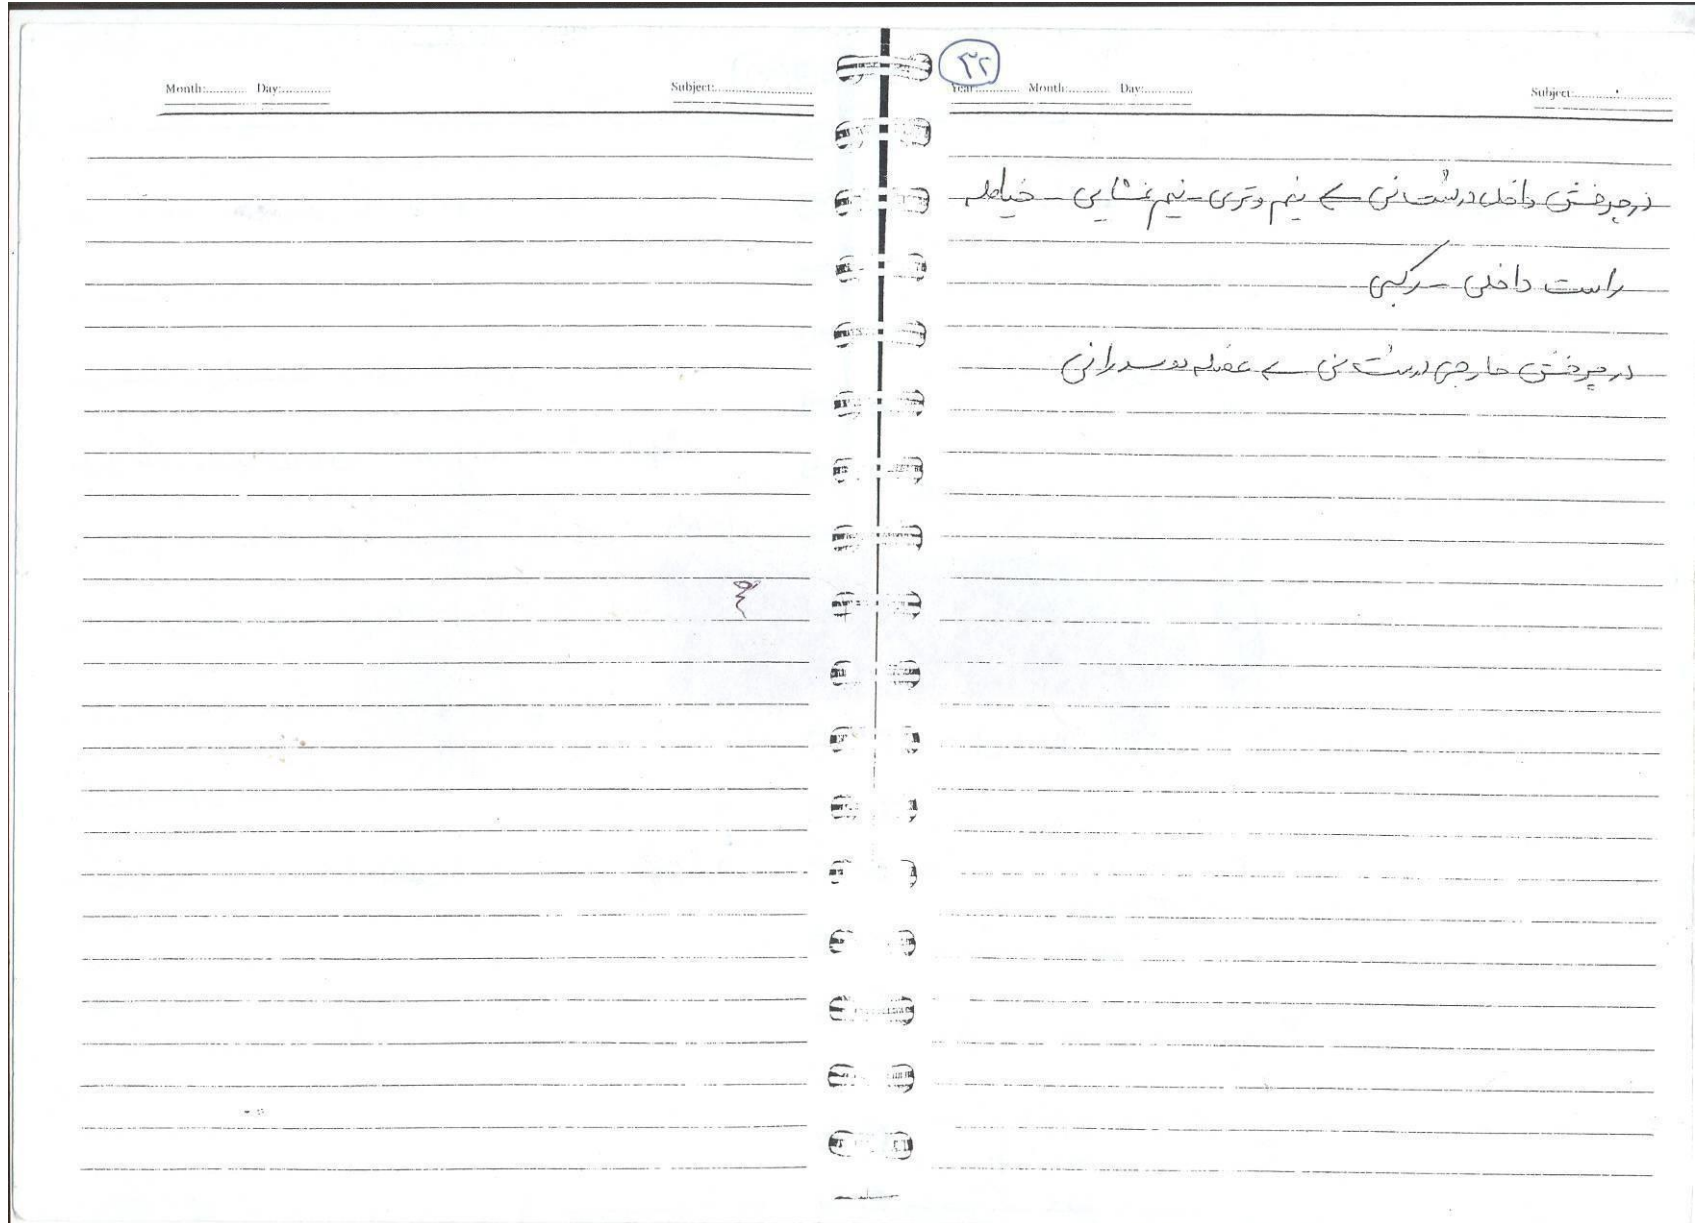 Month:............ Day:..............
Subject:............................
۳۲
Year:............ Month:............ Day:..............
Subject:............................
در چرخش داخلی درشت نی ← نیم وتری - نیم غشایی - خیاطه
راست داخلی - رکبی
در چرخش خارجی درشت نی ← عضله دوسررانی